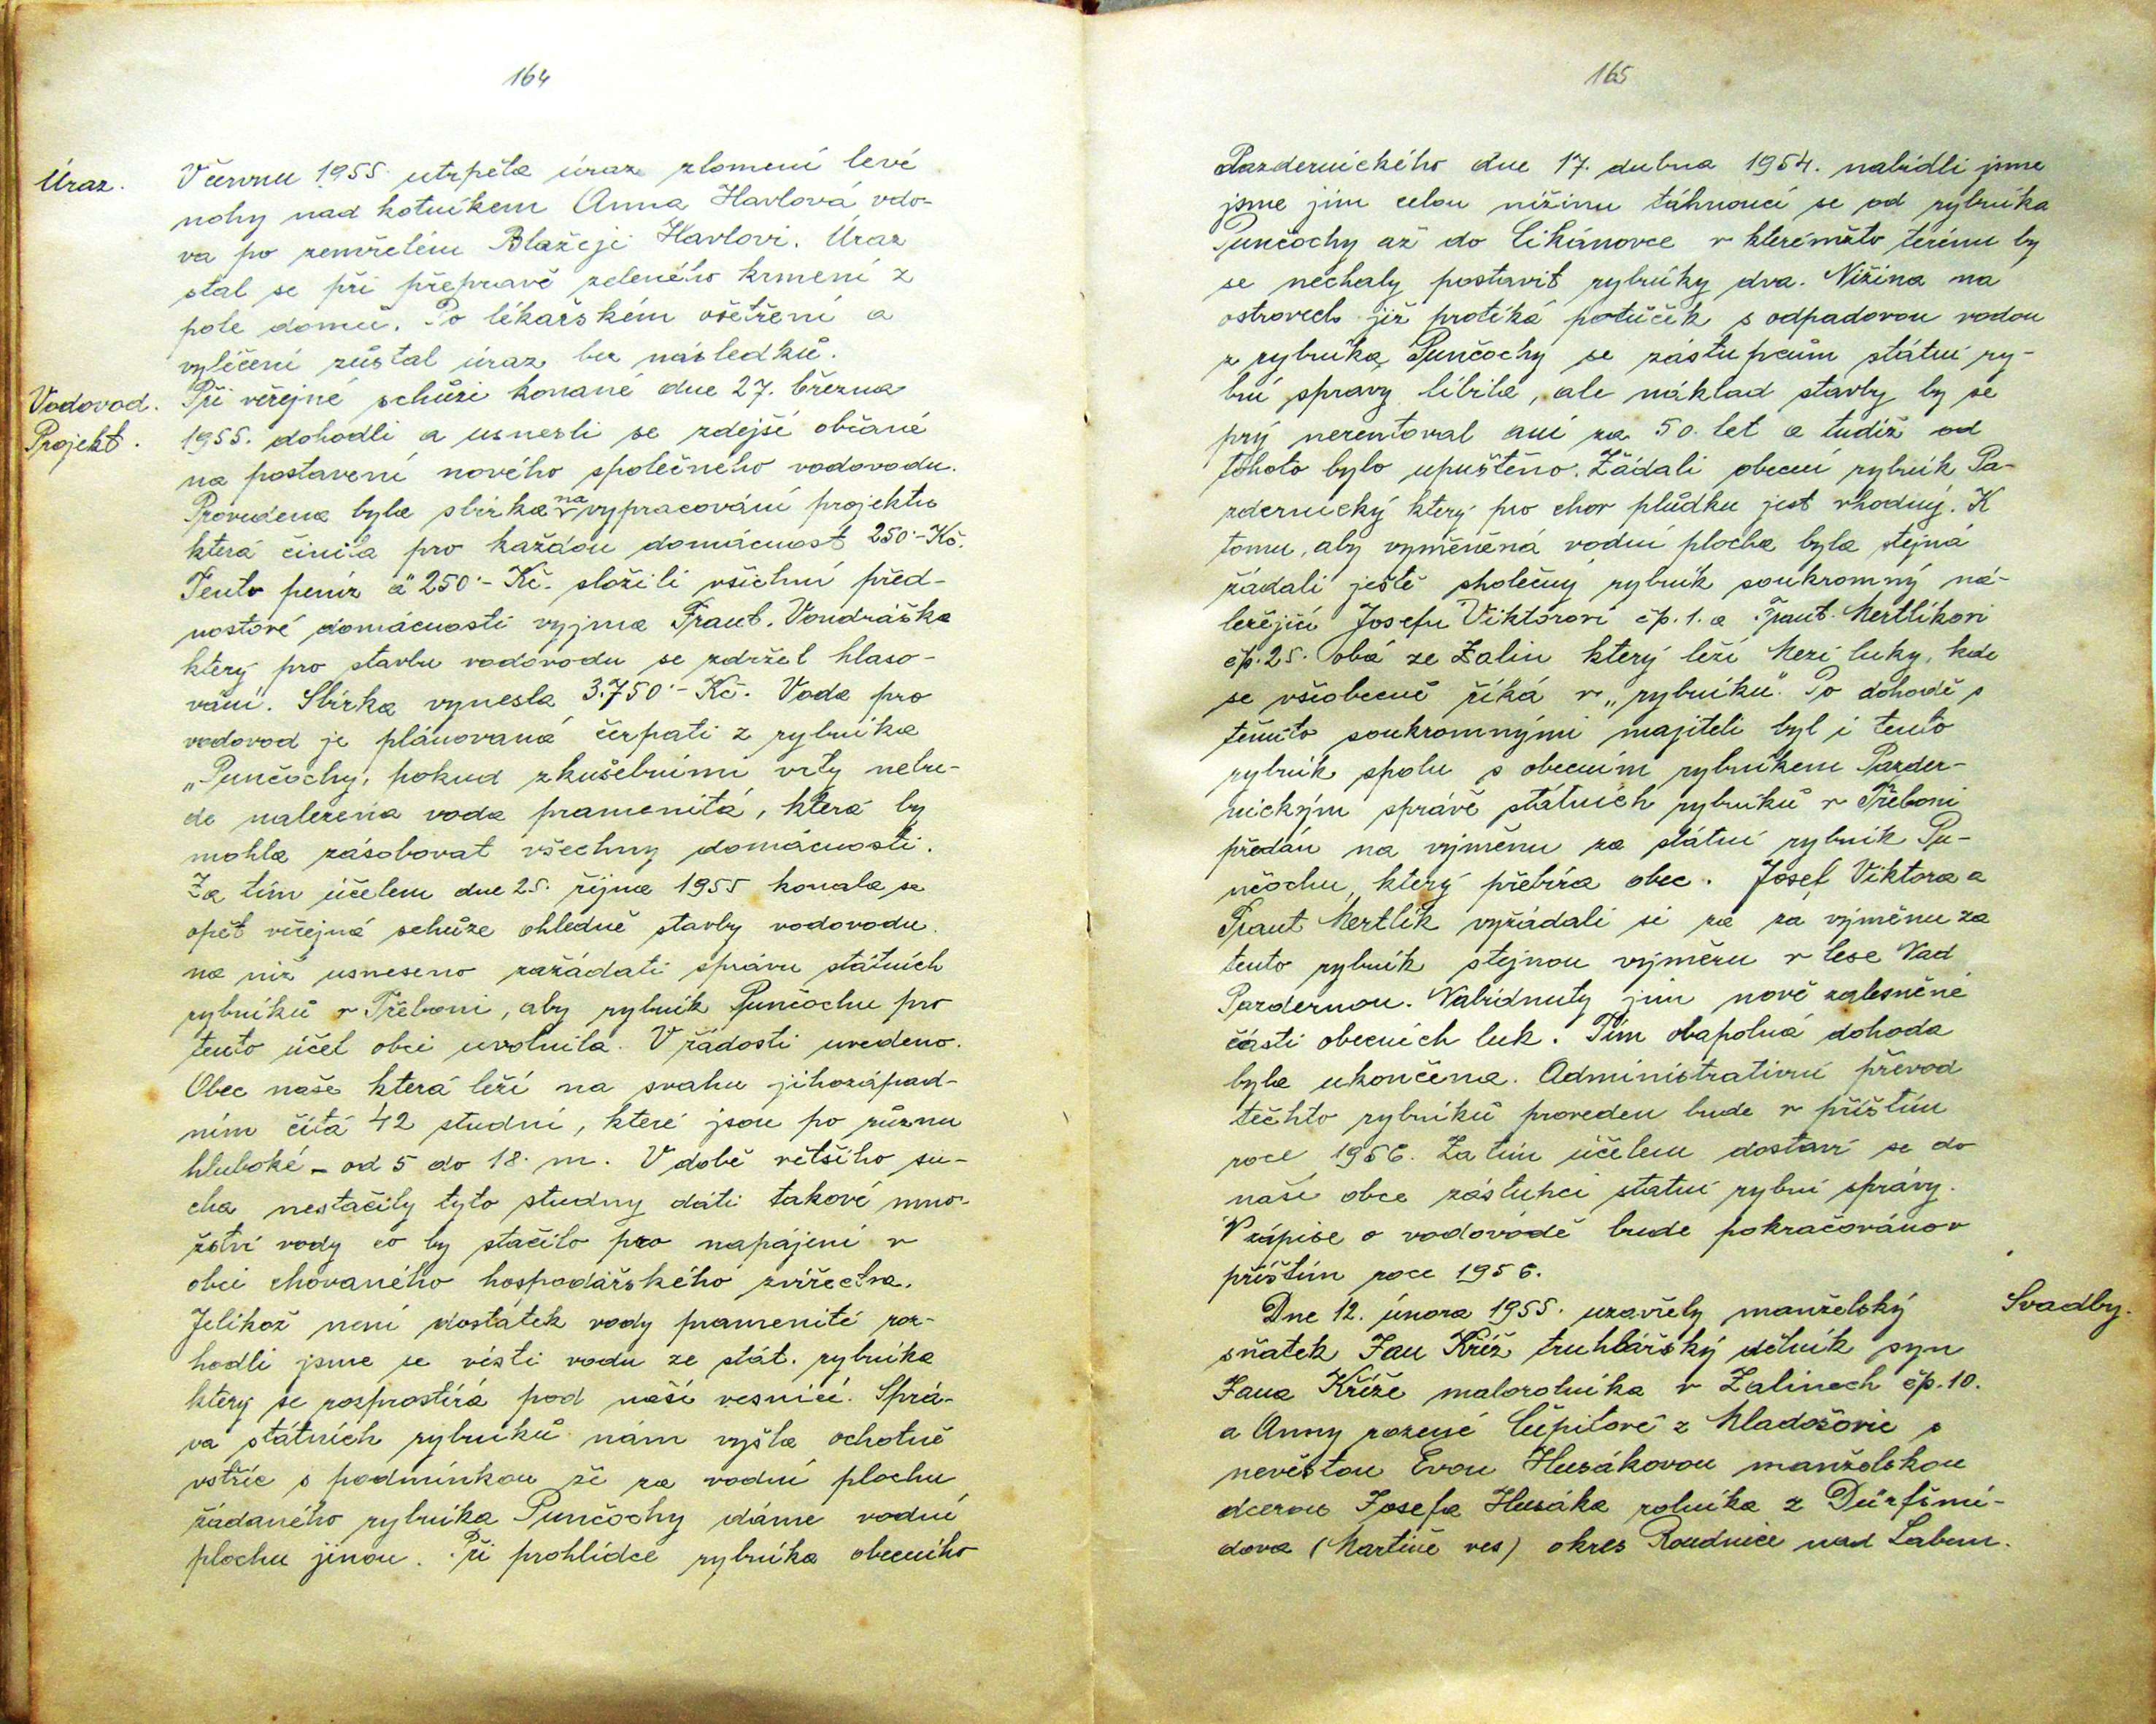 164
Úraz.
V červnu 1955 utrpěla úraz zlomení levé
nohy nad kotníkem Anna Havlová vdo-
va po zemřelém Blažeji Havlovi. Úraz
stal se při přepravě zeleného krmení z
pole domů. Po lékařském ošetření a
vyléčení zůstal úraz bez následků.
Vodovod.
Projekt.
Při veřejné schůzi konané dne 27. března
1955. dohodli a usnesli se zdejší občané
na postavení nového společného vodovodu.
Provedena byla sbírka na vypracování projektu
která činila pro každou domácnost 250·- Kč.
Tento peníz á 250·- Kč. složili všichni před-
nostové domácností vyjma Frant. Vondráška
který pro stavbu vodovodu se zdržel hlaso-
vání. Sbírka vynesla 3.750·- Kč. Voda pro
vodovod je plánovaná čerpati z rybníka
„Punčochy, pokud zkušebními vrty nebu-
de nalezena voda pramenitá, která by
mohla zásobovat všechny domácnosti.
Za tím účelem dne 25. října 1955 konala se
opět veřejná schůze ohledně stavby vodovodu.
na níž usneseno zažádati správu státních
rybníků v Třeboni, aby rybník Punčochu pro
tento účel obci uvolnila. V žádosti uvedeno.
Obec naše která leží na svahu jihozápad-
ním čítá 42 studní, které jsou po různu
hluboké - od 5 do 18. m. V době většího su-
cha nestačily tyto studny dáti takové mno-
žství vody co by stačilo pro napájení v
obci chovaného hospodářského zvířectva.
Jelikož není dostátek vody pramenité roz-
hodli jsme se vésti vodu ze stát. rybníka
který se rozprostírá pod naší vesnicí. Sprá-
va státních rybníků nám vyšla ochotně
vstříc s podmínkou že za vodní plochu
žádaného rybníka Punčochy dáme vodní
plochu jinou. Při prohlídce rybníka obecního
165
Pazdernického dne 17. dubna 1954. nabídli jsme
jsme jim celou nížinu táhnoucí se od rybníka
Punčochy až do Cikánovce v kterémžto terénu by
se nechaly postavit rybníky dva. Nížina na
ostrovech již protéká potůček s odpadovou vodou
z rybníka Punčochy se zástupcům státní ry-
bní spravy líbila, ale náklad stavby by se
prý nerentoval ani za 50. let a tudíž od
tohoto bylo upuštěno. Žádali obecní rybník Pa-
zdernický který pro chov plůdku jest vhodný. K
tomu, aby vyměněná vodní plocha byla stejná
žádali ještě sholečný rybník soukromný ná-
ležející Josefu Viktorovi čp. 1. a Frant. Mertlíkovi
čp. 25. oba ze Zalin který leží Mezi luky, kde
se všeobecně říká v „rybníku". Po dohodě s
těmito soukromnými majiteli byl i tento
rybník spolu s obecním rybníkem Pazder-
nickým správě státních rybníků v Třeboni
předán na výměnu za státní rybník Pu-
nčochu, který přebírá obec. Josef Viktora a
Frant Mertlík vyžádali si za za výměnu za
tento rybník stejnou výměru v lese Nad
Pazdernou. Nabídnuty jim nově zalesněné
části obecních luk. Tím obapolná dohoda
byla ukončena. Administrativní převod
těchto rybníků proveden bude v příštím
roce 1956. Za tím účelem dostaví se do
naší obce zástupci statní rybní správy.
V zápise o vodovodě bude pokračovánov
příštím roce 1956.
Svadby.
Dne 12. února 1955. uzavřely manželský
sňatek Jan Kříž truhlářský dělník syn
Jana Kříže malorolníka v Zalinech čp. 10.
a Anny rozené Cepilové z Mladošovic s
nevěstou Evou Husákovou manželskou
dcerou Josefa Husáka rolníka z Dürfšmí-
dova (Martině ves) okres Roudnice nad Labem.